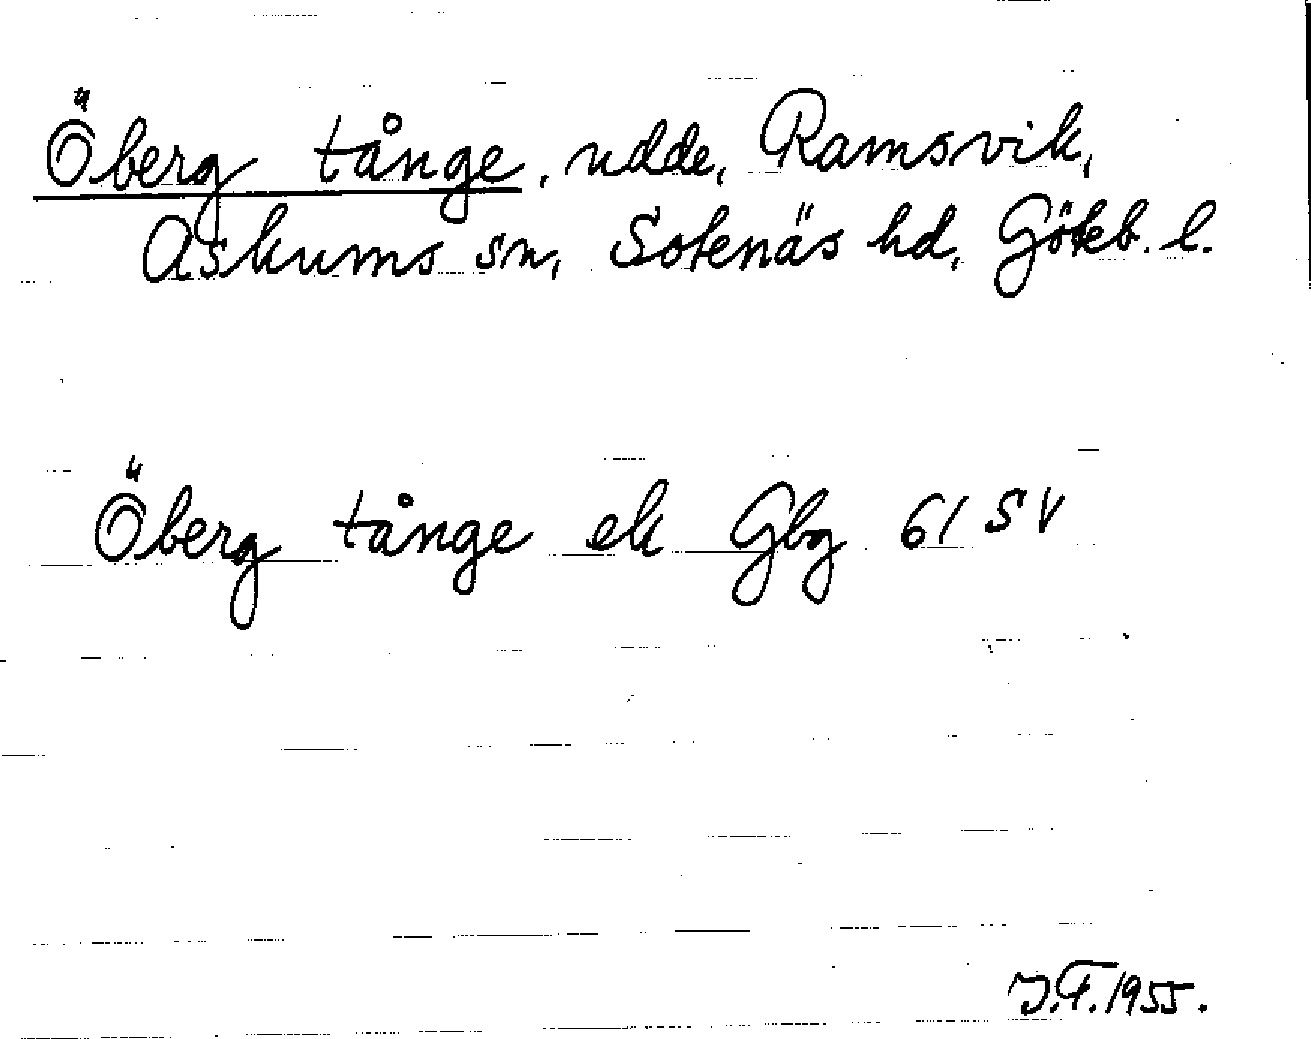 Öberg tånge, udde, Ramsvik,
Askums sn, Sotenäs hd, Göteb. l.
Öberg tånge ek Gbg 61 SV
J.F. 1955.